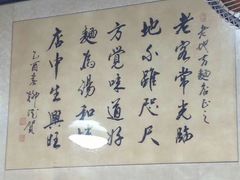 老地方麵店正之
老客常光臨
地不離咫尺
方覺味道好
麵為湯和
店中生興旺
乙酉春柳